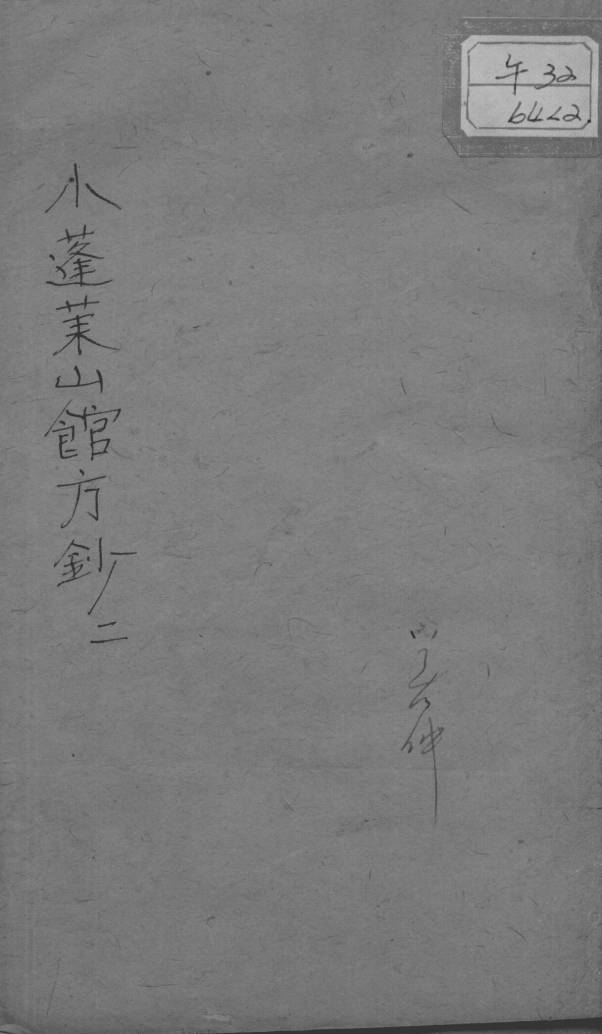 午32
64<2
小蓬莱山館方鈔 二